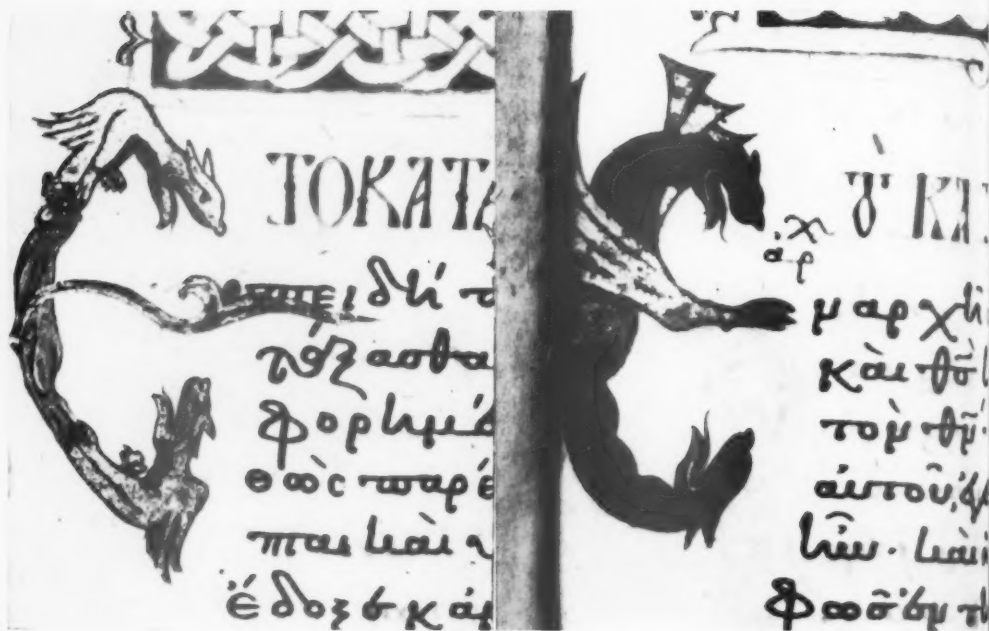 ΤΟΚΑΤΑ
πειδή π
τάξασθα
φορημέ
θὼς παρέ
ται καὶ
ἔδοξε κἀμ
ΚΑ
ἀρχ
ν αρχῆ
καὶ θς
τὸν θν
αὐτοῦ, ἐγ
ἦν· καὶ
φῶς ἐν τ